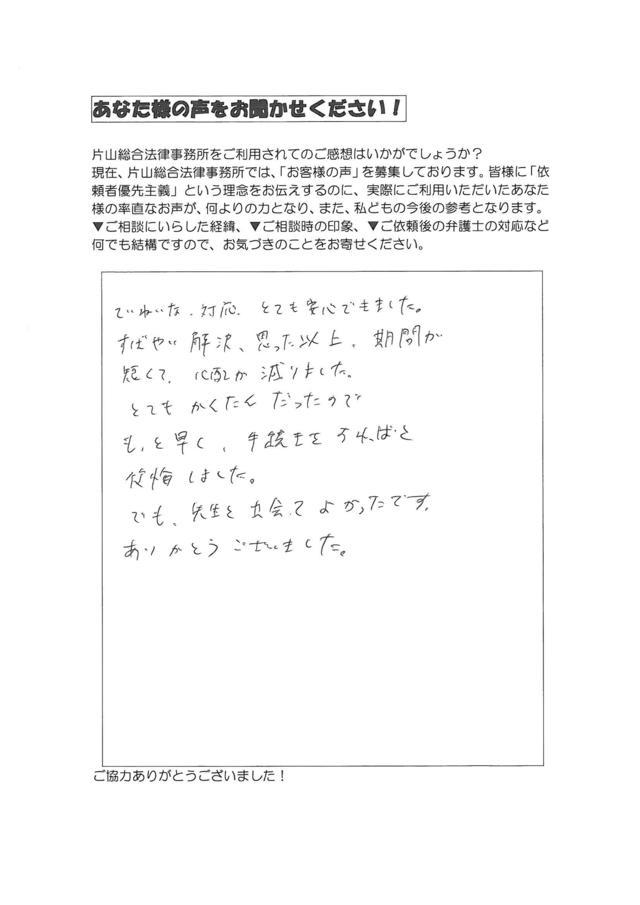 あなた様の声をお聞かせください！
片山総合法律事務所をご利用されてのご感想はいかがでしょうか？
現在、片山総合法律事務所では、「お客様の声」を募集しております。皆様に「依
頼者優先主義」という理念をお伝えするのに、実際にご利用いただいたあなた
様の率直なお声が、何よりの力となり、また、私どもの今後の参考となります。
▼ご相談にいらした経緯、▼ご相談時の印象、▼ご依頼後の弁護士の対応など
何でも結構ですので、お気づきのことをお寄せください。
ていねいな対応、とても安心できました。
すばやい解決、思った以上、期間が
短くて、心配が減りました。
とてもかくたんだったので
もっと早く、手続きをすればと
後悔しました。
でも、先生と出会ってよかったです。
ありがとうございました。
ご協力ありがとうございました！